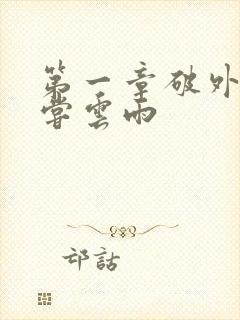 第一章破外
嘗雲雨
邙話